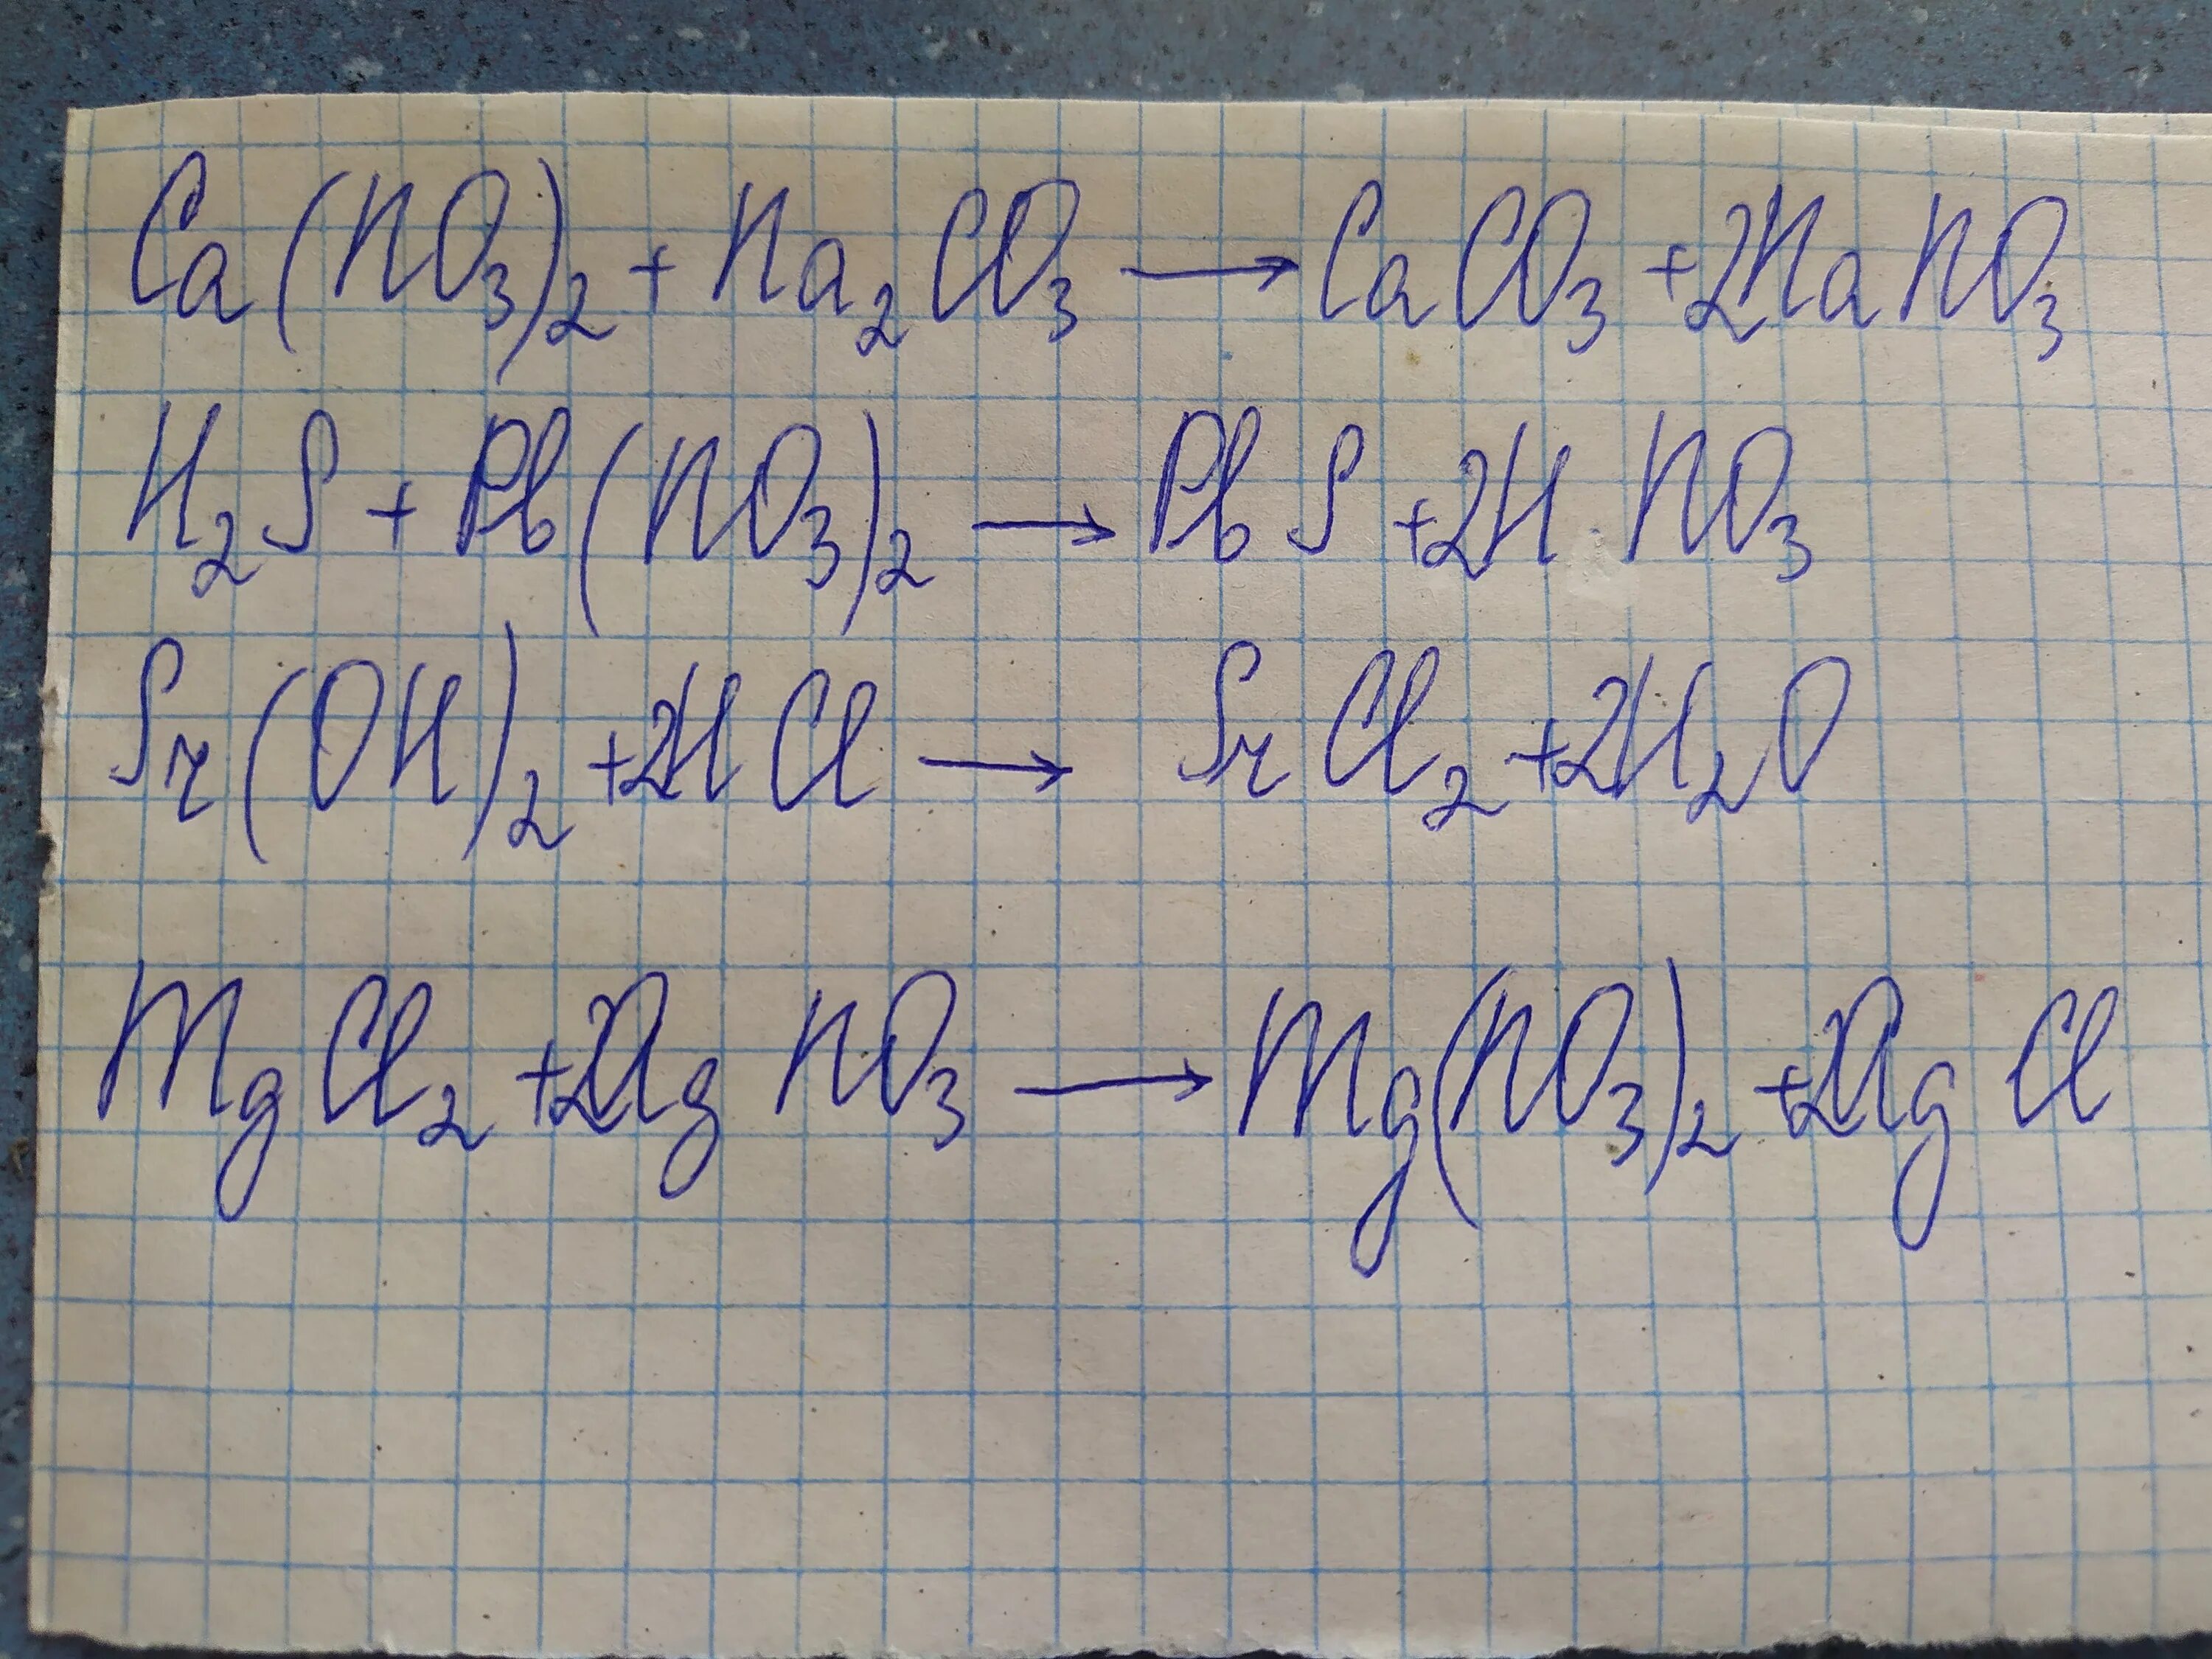 Ca(NO₃)₂ + Na₂CO₃ → CaCO₃ + 2NaNO₃
H₂S + Pb(NO₃)₂ → PbS + 2HNO₃
Sr(OH)₂ + 2HCl → SrCl₂ + 2H₂O
MgCl₂ + 2AgNO₃ → Mg(NO₃)₂ + 2AgCl